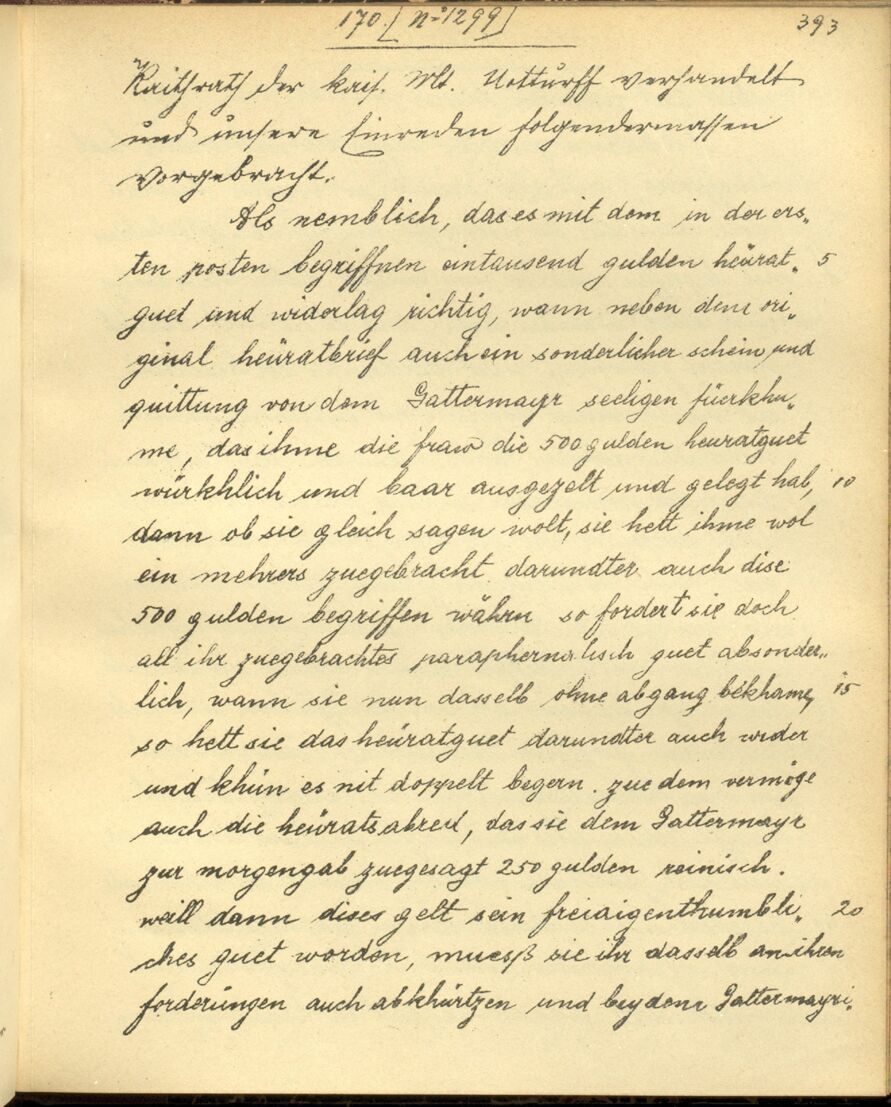 170. [No 1299]
393
Raithrath der kais. Mt. verhandelt
und unsere Einreden folgendermassen
vorgebracht.
Als nemblich, das es mit dem in der ers„
ten posten begriffnen eintausend gulden heürat„ 5
guet und widerlag richtig, wann neben dem ori„
ginal heüratbrief auch ein sonderlicher schein und
quittung von dem Gattermayr seeligen füerkhu„
me, das ihme die fraw die 500 gulden heuratguet
würkhlich und baar ausgezelt und gelegt hab, 10
dann ob sie gleich sagen wolt, sie hett ihme wol
ein mehrers zuegebracht darundter auch dise
500 gulden begriffen währn so fordert sie doch
all ihr zuegebrachtes paraphernalisch guet absonder„
lich, wann sie nun dasselb ohne abgang bekhame, 15
so hett sie das heüratguet darundter auch wider
und khün es nit doppelt begern. zue dem vermöge
auch die heüratsabred, das sie dem Gattermayr
zur morgengab zuegesagt 250 gulden reinisch.
weill dann dises gelt sein freiaigenthumbli„ 20
ches guet worden, muesß sie ihr dasselb an ihren
forderüngen auch abkhürtzen und bey dem Gattermayri„